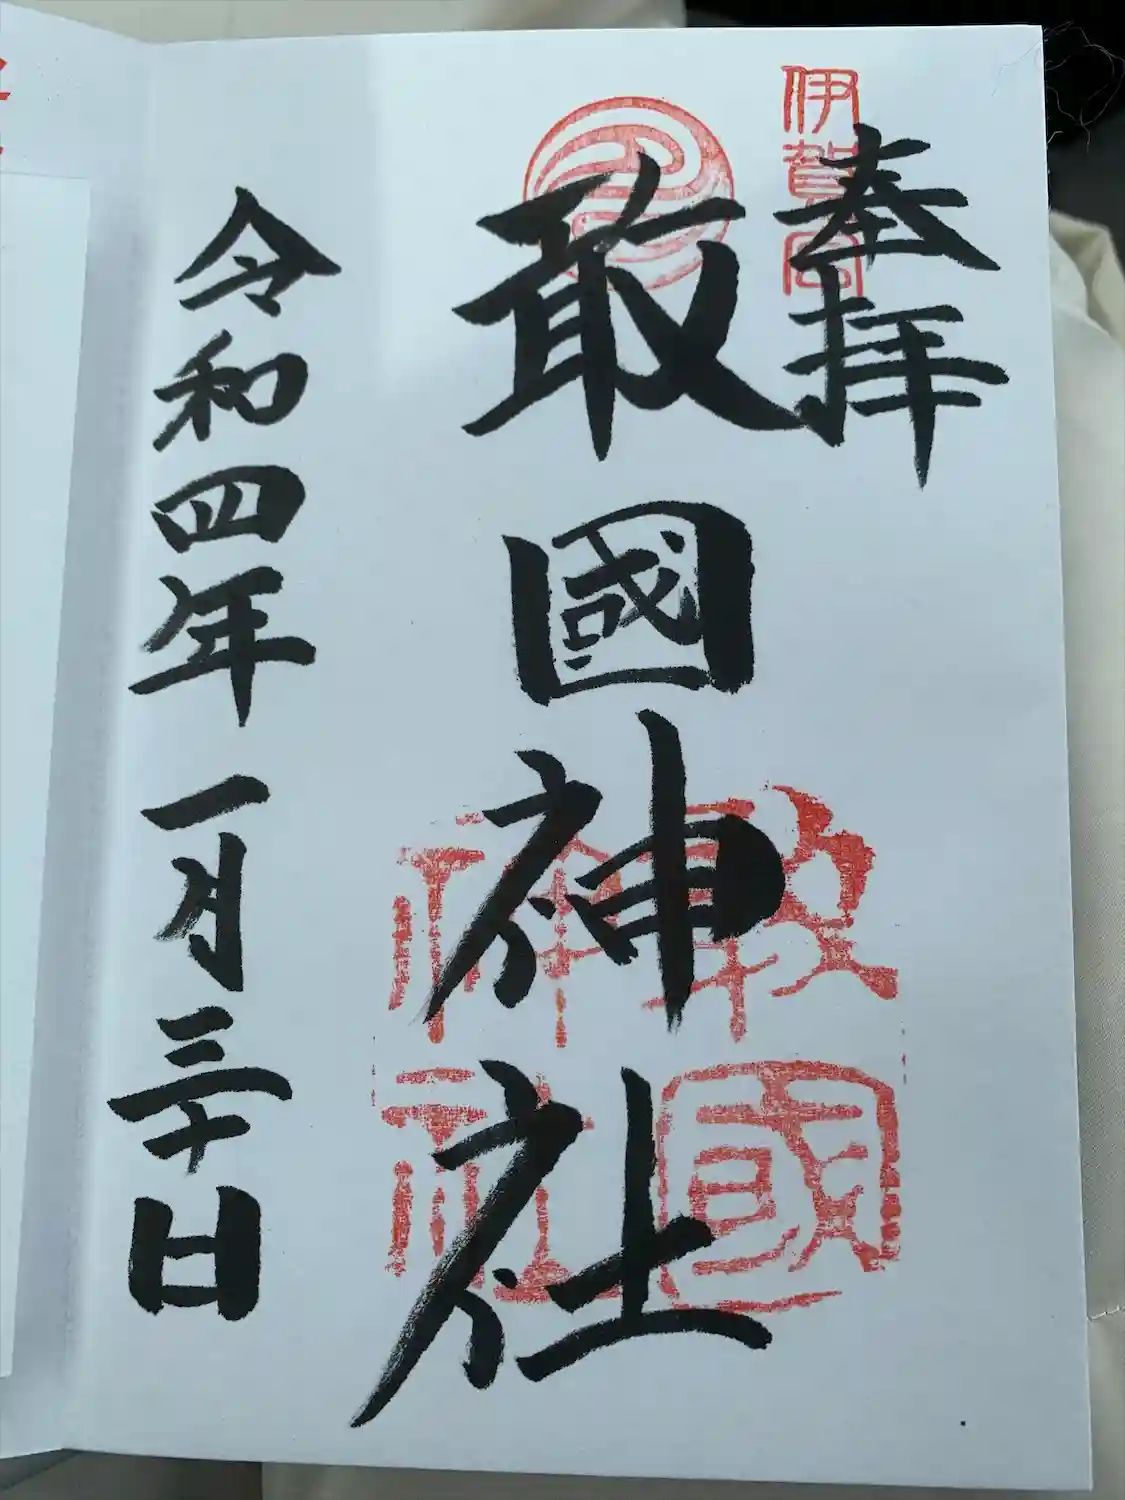 奉拝
伊賀一宮
敢國神社
敢國神社
令和四年一月三十日